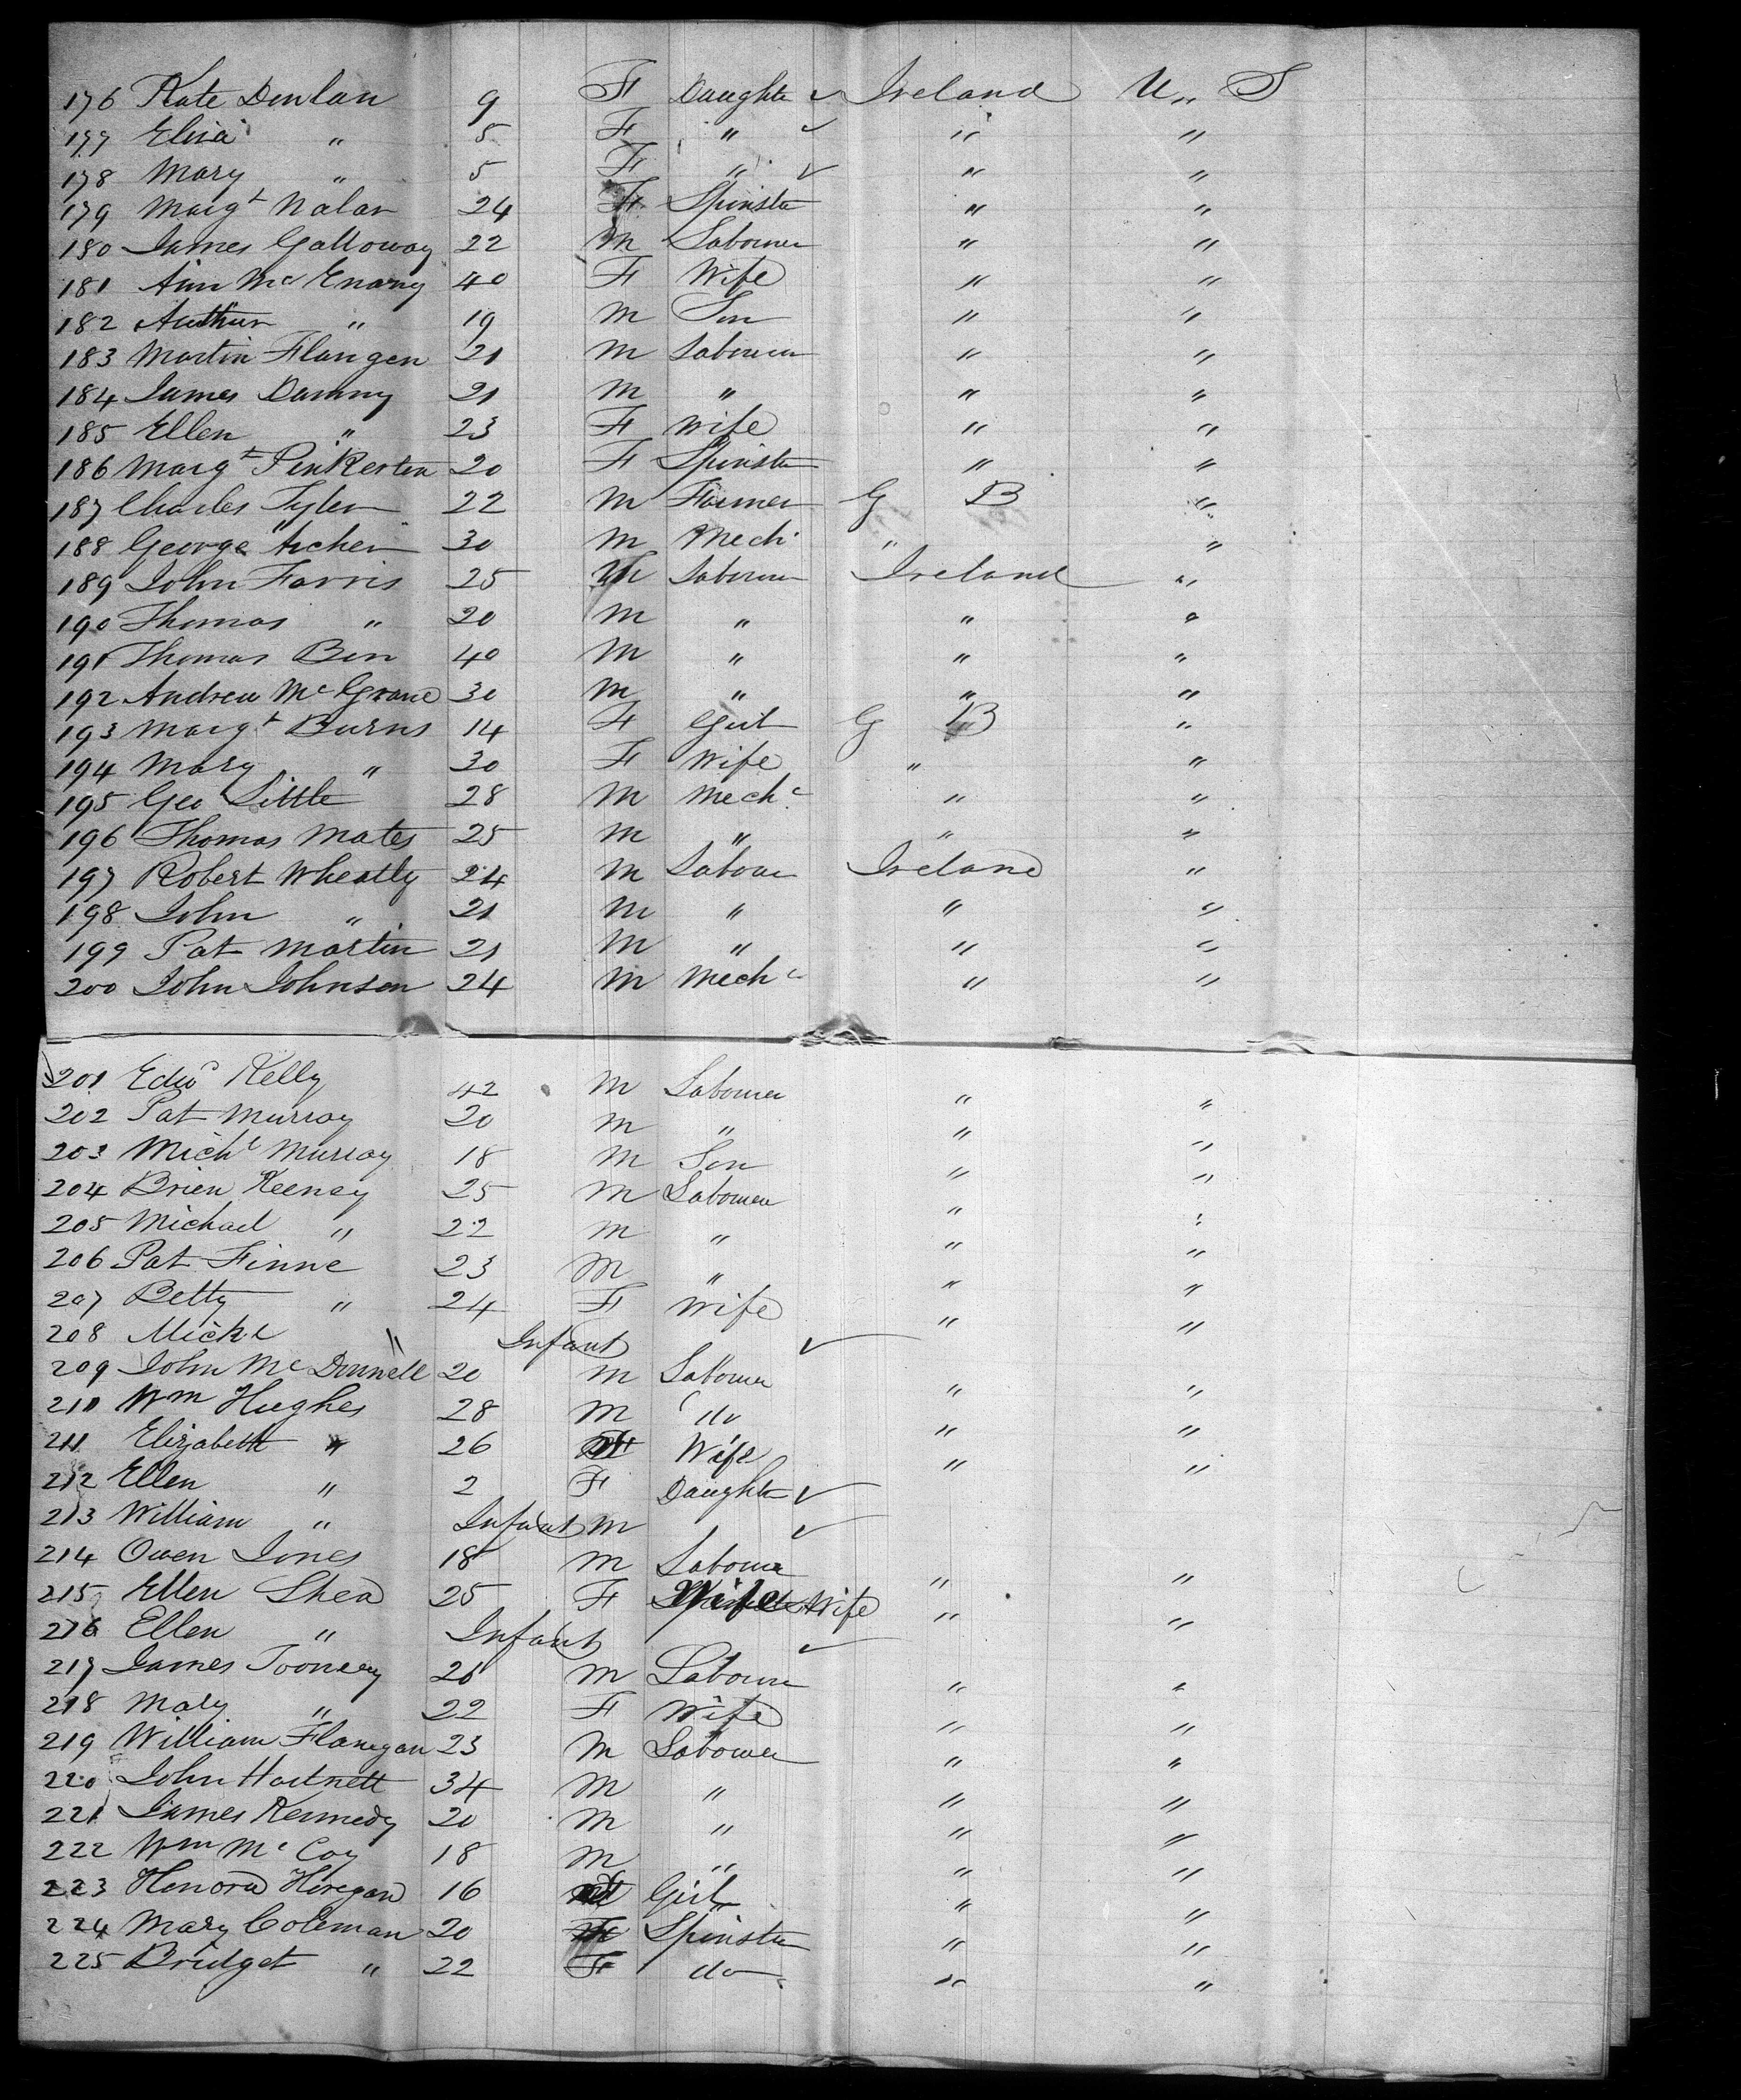 176 Kate Donlan 9 F Daughter ✓ Ireland U,, S
177 Eliza " 8 F " ✓ " "
178 Mary " 5 F " ✓ " "
179 Margt Nolan 24 F Spinster " "
180 James Galloway 22 M Labourer " "
181 Ann McEnarny 40 F Wife " "
182 Arthur " 19 M Son " "
183 Martin Flangen 21 M Labourer " "
184 James 21 M " " "
185 Ellen " 23 F Wife " "
186 Margt Pinkerton 20 F Spinster " "
187 Charles Tyler 22 M Farmer G B "
188 George Archer 30 M Mech " "
189 John Farris 25 M Labourer Ireland "
190 Thomas " 20 M " " "
191 Thomas Ben 40 M " " "
192 Andrew McGrane 30 M " " "
193 Margt Burns 14 F Girl G B "
194 Mary " 30 F Wife " "
195 Geo Little 28 M Mechc " "
196 Thomas Mates 25 M " " "
197 Robert Wheatly 24 M Labour Ireland "
198 John " 21 M " " "
199 Pat Martin 21 M " " "
200 John Johnson 24 M Mechc " "
201 Edwd Kelly 42 M Labourer " "
202 Pat Murray 20 M " " "
203 Michl Murray 18 M Son " "
204 Brien Keenay 25 M Labourer " "
205 Michael " 22 M " " "
206 Pat Finne 23 M " " "
207 Betty " 24 F Wife " "
208 Michl " Infant ✓
209 John McDonnell 20 M Labourer " "
210 Wm Hughes 28 M do " "
211 Elizabeth " 26 F Wife " "
212 Ellen " 2 F Daughter ✓
213 William " Infant M ✓
214 Owen Jones 18 M Labourer " "
215 Ellen Shea 25 F Wife Wife " "
216 Ellen " Infant ✓
217 James Tooneey 26 M Labourer " "
218 Mary " 22 F Wife " "
219 William Flanegan 23 M Labourer " "
220 John Hartnett 34 M " " "
221 James Kennedy 20 M " " "
222 Wm McCoy 18 M " " "
223 Honora Horegan 16 F Girl " "
224 Mary Coleman 20 F Spinster " "
225 Bridget " 22 F do " "